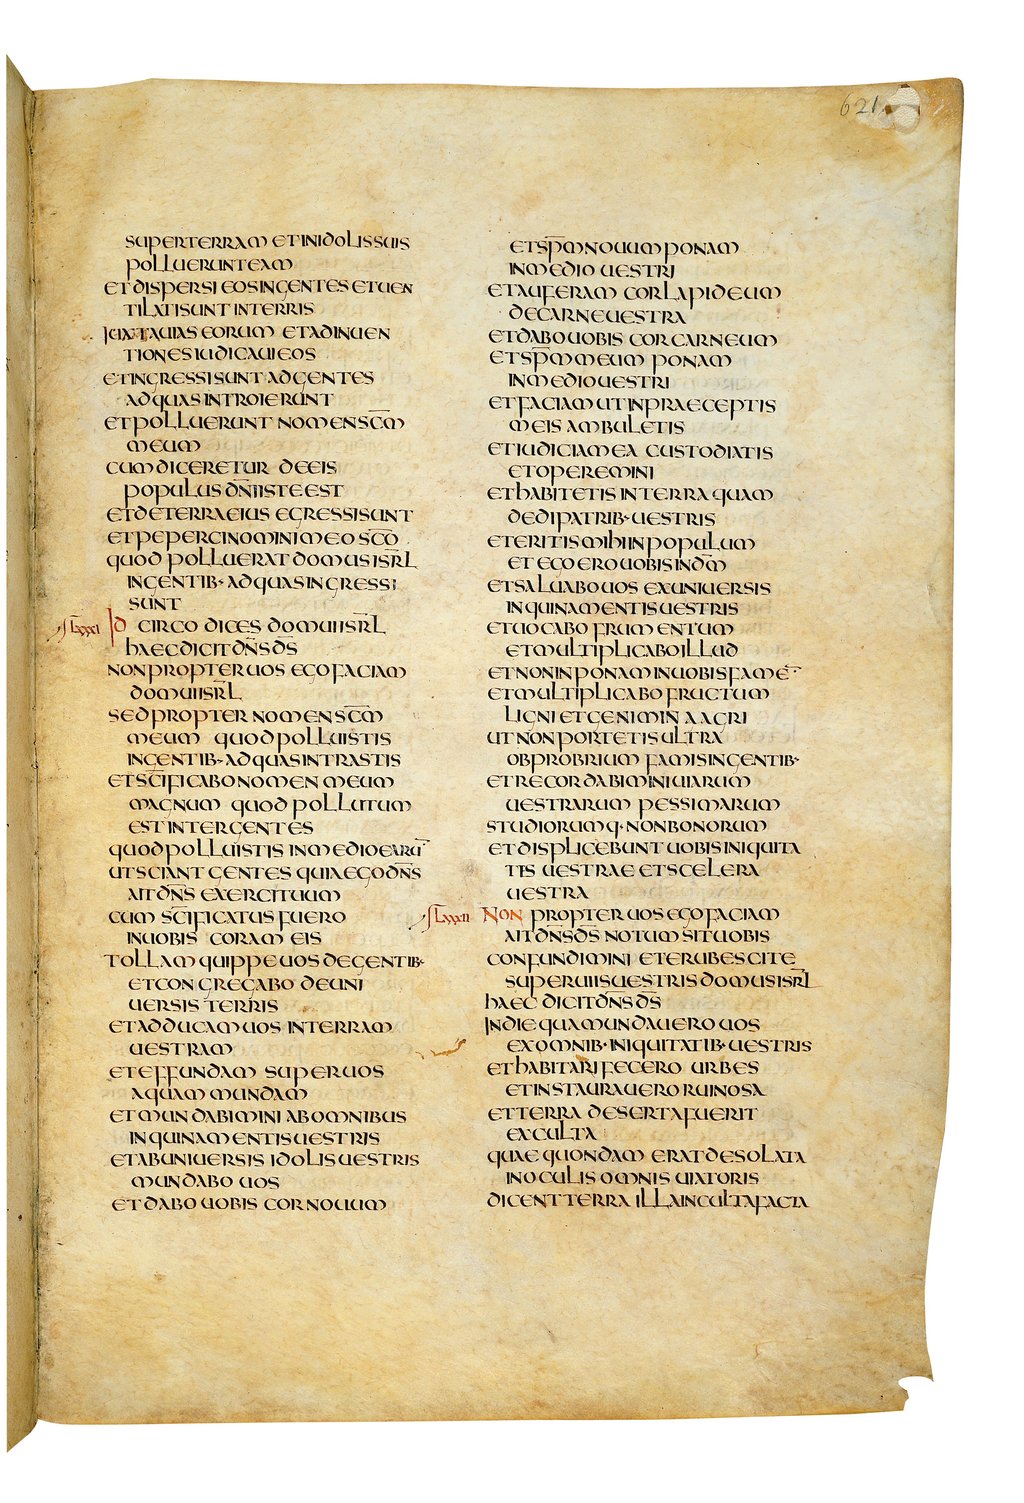 621
SUPERTERRAM ETINIDOLISSUIS
POLLUERUNTEAM
ETDISPERSI EOSINGENTES ETUEN
TILATISUNT INTERRIS
IUXTAUIAS EORUM ETADINUEN
TIONESIUDICAUIEOS
ETINGRESSISUNT ADGENTES
ADQUASINTROIERUNT
ETPOLLUERUNT NOMENSC̅M̅
MEUM
CUMDICERETUR DEEIS
POPULUS DN̅IISTEEST
ETDETERRAEIUS EGRESSISUNT
ETPEPERCINOMINIMEOSC̅O
QUOD POLLUERAT DOMUSISR̅L
INGENTIB· ADQUASINGRESSI
SUNT
LXXXI ID CIRCO DICES DOMUIISR̅L
HAECDICITDN̅SDS̅
NONPROPTERUOS EGOFACIAM
DOMUIISR̅L
SEDPROPTER NOMENSC̅M̅
MEUM QUODPOLLUISTIS
INGENTIB· ADQUASINTRASTIS
ETSC̅IFICABONOMEN MEUM
MAGNUM QUOD POLLUTUM
ESTINTERGENTES
QUODPOLLUISTIS INMEDIOEARU̅
UTSCIANT GENTES QUIAEGODN̅S
AITDN̅S EXERCITUUM
CUM SC̅IFICATUS FUERO
INUOBIS CORAM EIS
TOLLAMQUIPPEUOS DEGENTIB·
ETCONGREGABO DEUNI
UERSIS TERRIS
ETADDUCAMUOS INTERRAM
UESTRAM
ETEFFUNDAM SUPERUOS
AQUAM MUNDAM
ETMUNDABIMINI ABOMNIBUS
INQUINAMENTISUESTRIS
ETABUNIUERSIS IDOLISUESTRIS
MUNDABO UOS
ETDABO UOBIS CORNOUUM
ETSP̅MNOUUMPONAM
INMEDIO UESTRI
ETAUFERAM CORLAPIDEUM
DECARNEUESTRA
ETDABOUOBIS CORCARNEUM
ETSP̅MMEUM PONAM
INMEDIOUESTRI
ETFACIAMUTINPRAECEPTIS
MEIS AMBULETIS
ETIUDICIAMEA CUSTODIATIS
ETOPEREMINI
ETHABITETIS INTERRA QUAM
DEDIPATRIB·UESTRIS
ETERITISMIHIINPOPULUM
ET EGOEROUOBISINDM̅
ETSALUABOUOS EXUNIUERSIS
INQUINAMENTISUESTRIS
ETUOCABO FRUMENTUM
ETMULTIPLICABOILLUD
ETNONINPONAMINUOBISFAME̅
ETMULTIPLICABO FRUCTUM
LIGNI ETGENIMINA AGRI
UTNONPORTETISULTRA
OBPROBRIUM FAMISINGENTIB·
ETRECORDABIMINIUIARUM
UESTRARUM PESSIMARUM
STUDIORUMQ·NONBONORUM
ETDISPLICEBUNT UOBISINIQUITA
TIS UESTRAE ETSCELERA
UESTRA
LXXXII NON PROPTERUOSEGOFACIAM
AITDN̅SDS̅ NOTUM SITUOBIS
CONFUNDIMINI ETERUBESCITE
SUPERUIISUESTRISDOMUSISR̅L
HAEC DICITDN̅SDS̅
INDIEQUAMUNDAUEROUOS
EXOMNIB·INIQUITATIB·UESTRIS
ETHABITARIFECERO URBES
ETINSTAURAUERORUINOSA
ETTERRA DESERTAFUERIT
EXCULTA
QUAE QUONDAM ERATDESOLATA
INOCULISOMNIS UIATORIS
DICENTTERRA ILLAINCULTAFACTA